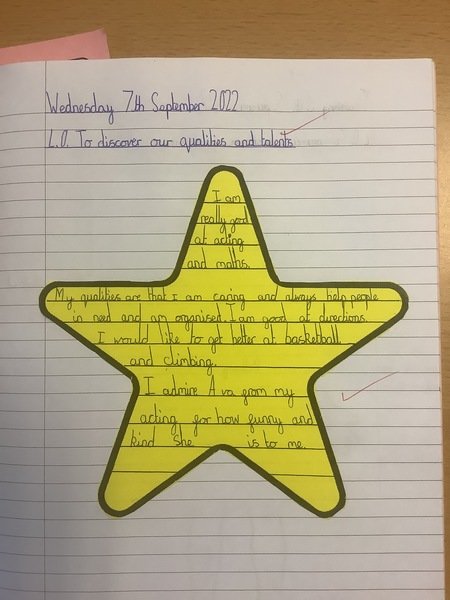 Wednesday 7th September 2022
L.O. To discover our qualities and talents
I am
really good
at acting
and maths.
My qualities are that I am caring and always help people
in need and am organised. I am good at directions.
I would like to get better at basketball
and climbing.
I admire Ava from my
acting for how funny and
kind She is to me.